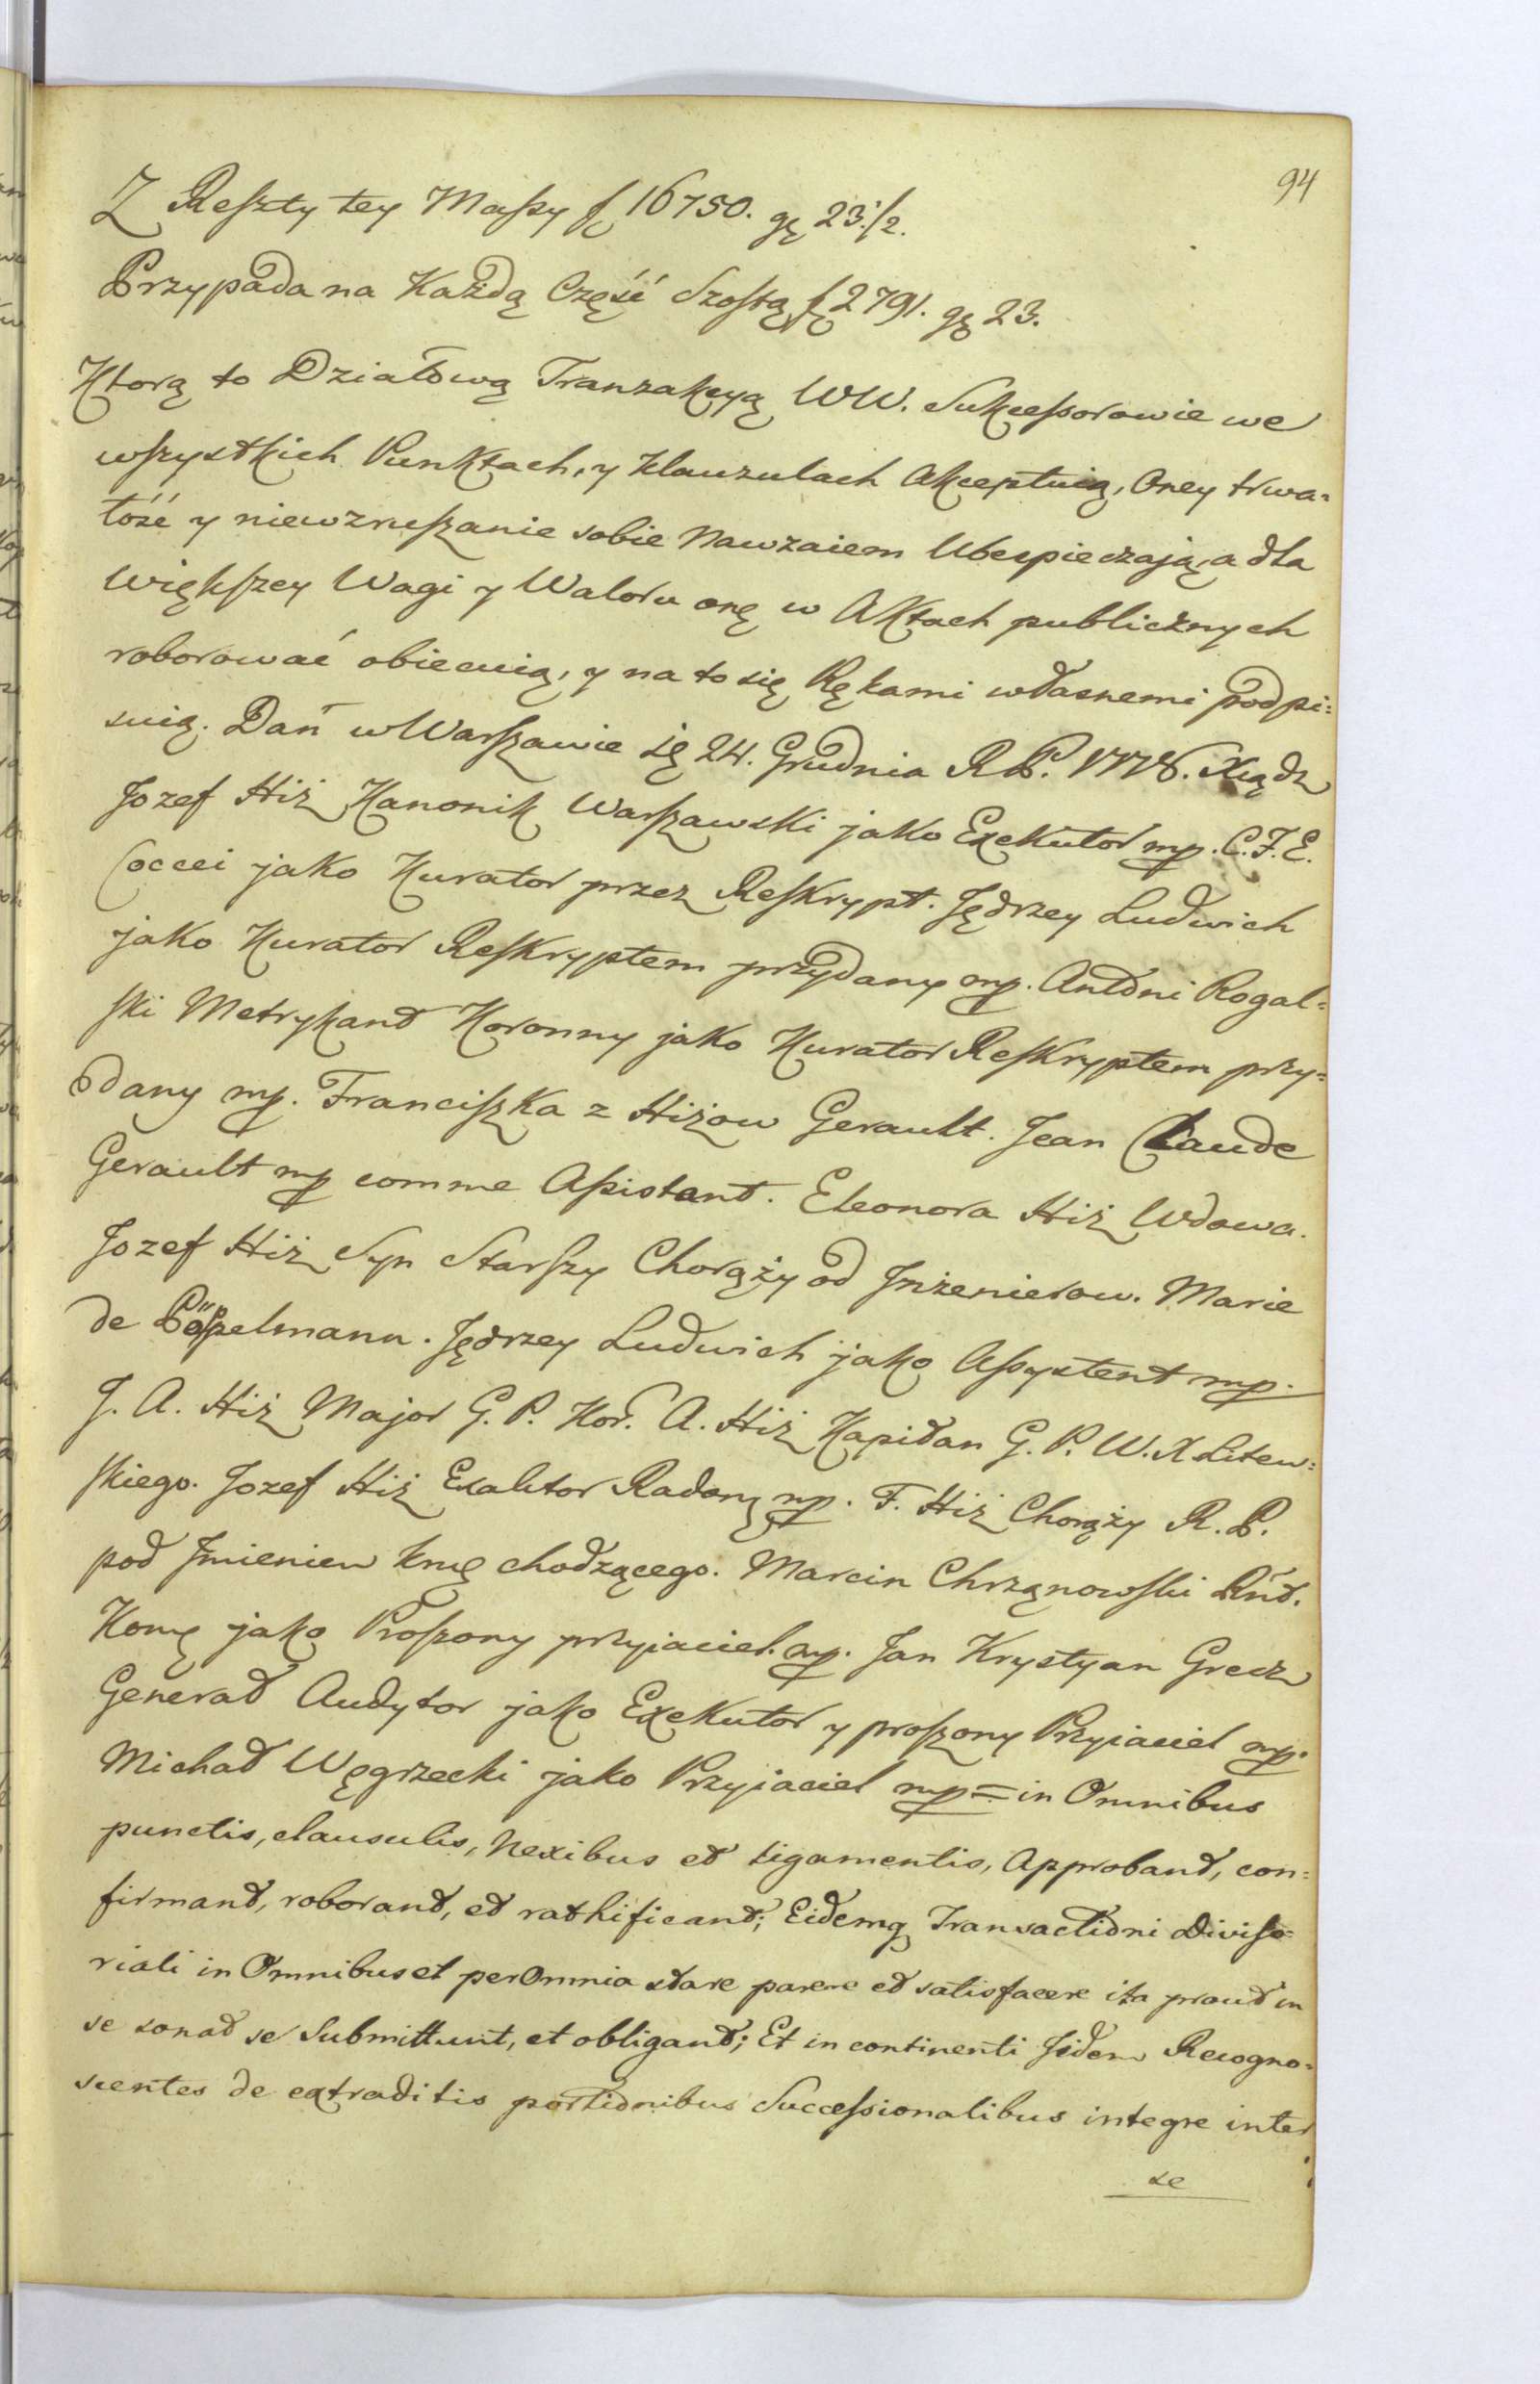 94
Z Reszty tey Massy f 16750. gę 23.½.
Przypada na Każdą Część Szostą f 2791. gę 23.
Ktorą to Działową Tranzakcyą WW. Sukcessorowie we
wszystkich Punktach, y Klauzulach Akceptuią, Oney trwa=
łość y niewzruszanie sobie Nawzaiem Ubespieczaią, a dla
Większey Wagi y Waloru onę w Aktach publicznych
roborować obiecuią, y na to się Rękami własnemi podpi=
suią. Dań w Warszawie d. 24. Grudnia R P. 1778. Xiądz
Jozef Hiż Kanonik Warszawski jako Exekutor mp. C. F. E.
Coccei jako Kurator przez Reskrypt. Jędrzey Ludwich
jako Kurator Reskryptem przydany mp. Antoni Rogal=
ski Metrykant Koronny jako Kurator Reskryptem przy=
dany mp. Franciszka z Hiżow Gerault. Jean Claude
Gerault mp comme Assistant. Eleonora Hiż Wdowa.
Jozef Hiż Syn Starszy Chorąży od Jnżenierow. Marie
de Pöppelmann. Jędrzey Ludwich jako Assystent mp.
J. A. Hiż Major G. P. Kor. A. Hiż Kapitan G. P. W. X Litew=
skiego. Jozef Hiż mp. F. Hiż Chorąży R. P.
pod Jmieniem chodzącego. Marcin Chrzanowski
jako Proszony przyjaciel. mp. Jan Krystyan Grecz
Generał Audytor jako Exekutor y proszony Przyiaciel mp.
Michał Węgrzecki jako Przyiaciel mp = in Omnibus
punctis, clausulis, Nexibus et ligamentis, Approbant, con=
firmant, roborant, et rathificant; Eidemq Transactioni Diviso=
riali in Omnibus et per Omnia stare parere et satisfacere ita prout in
se sonat se Submittunt, et obligant; Et in continenti Jidem Recogno=
scentes de extraditis portionibus Successionalibus integre inter
se